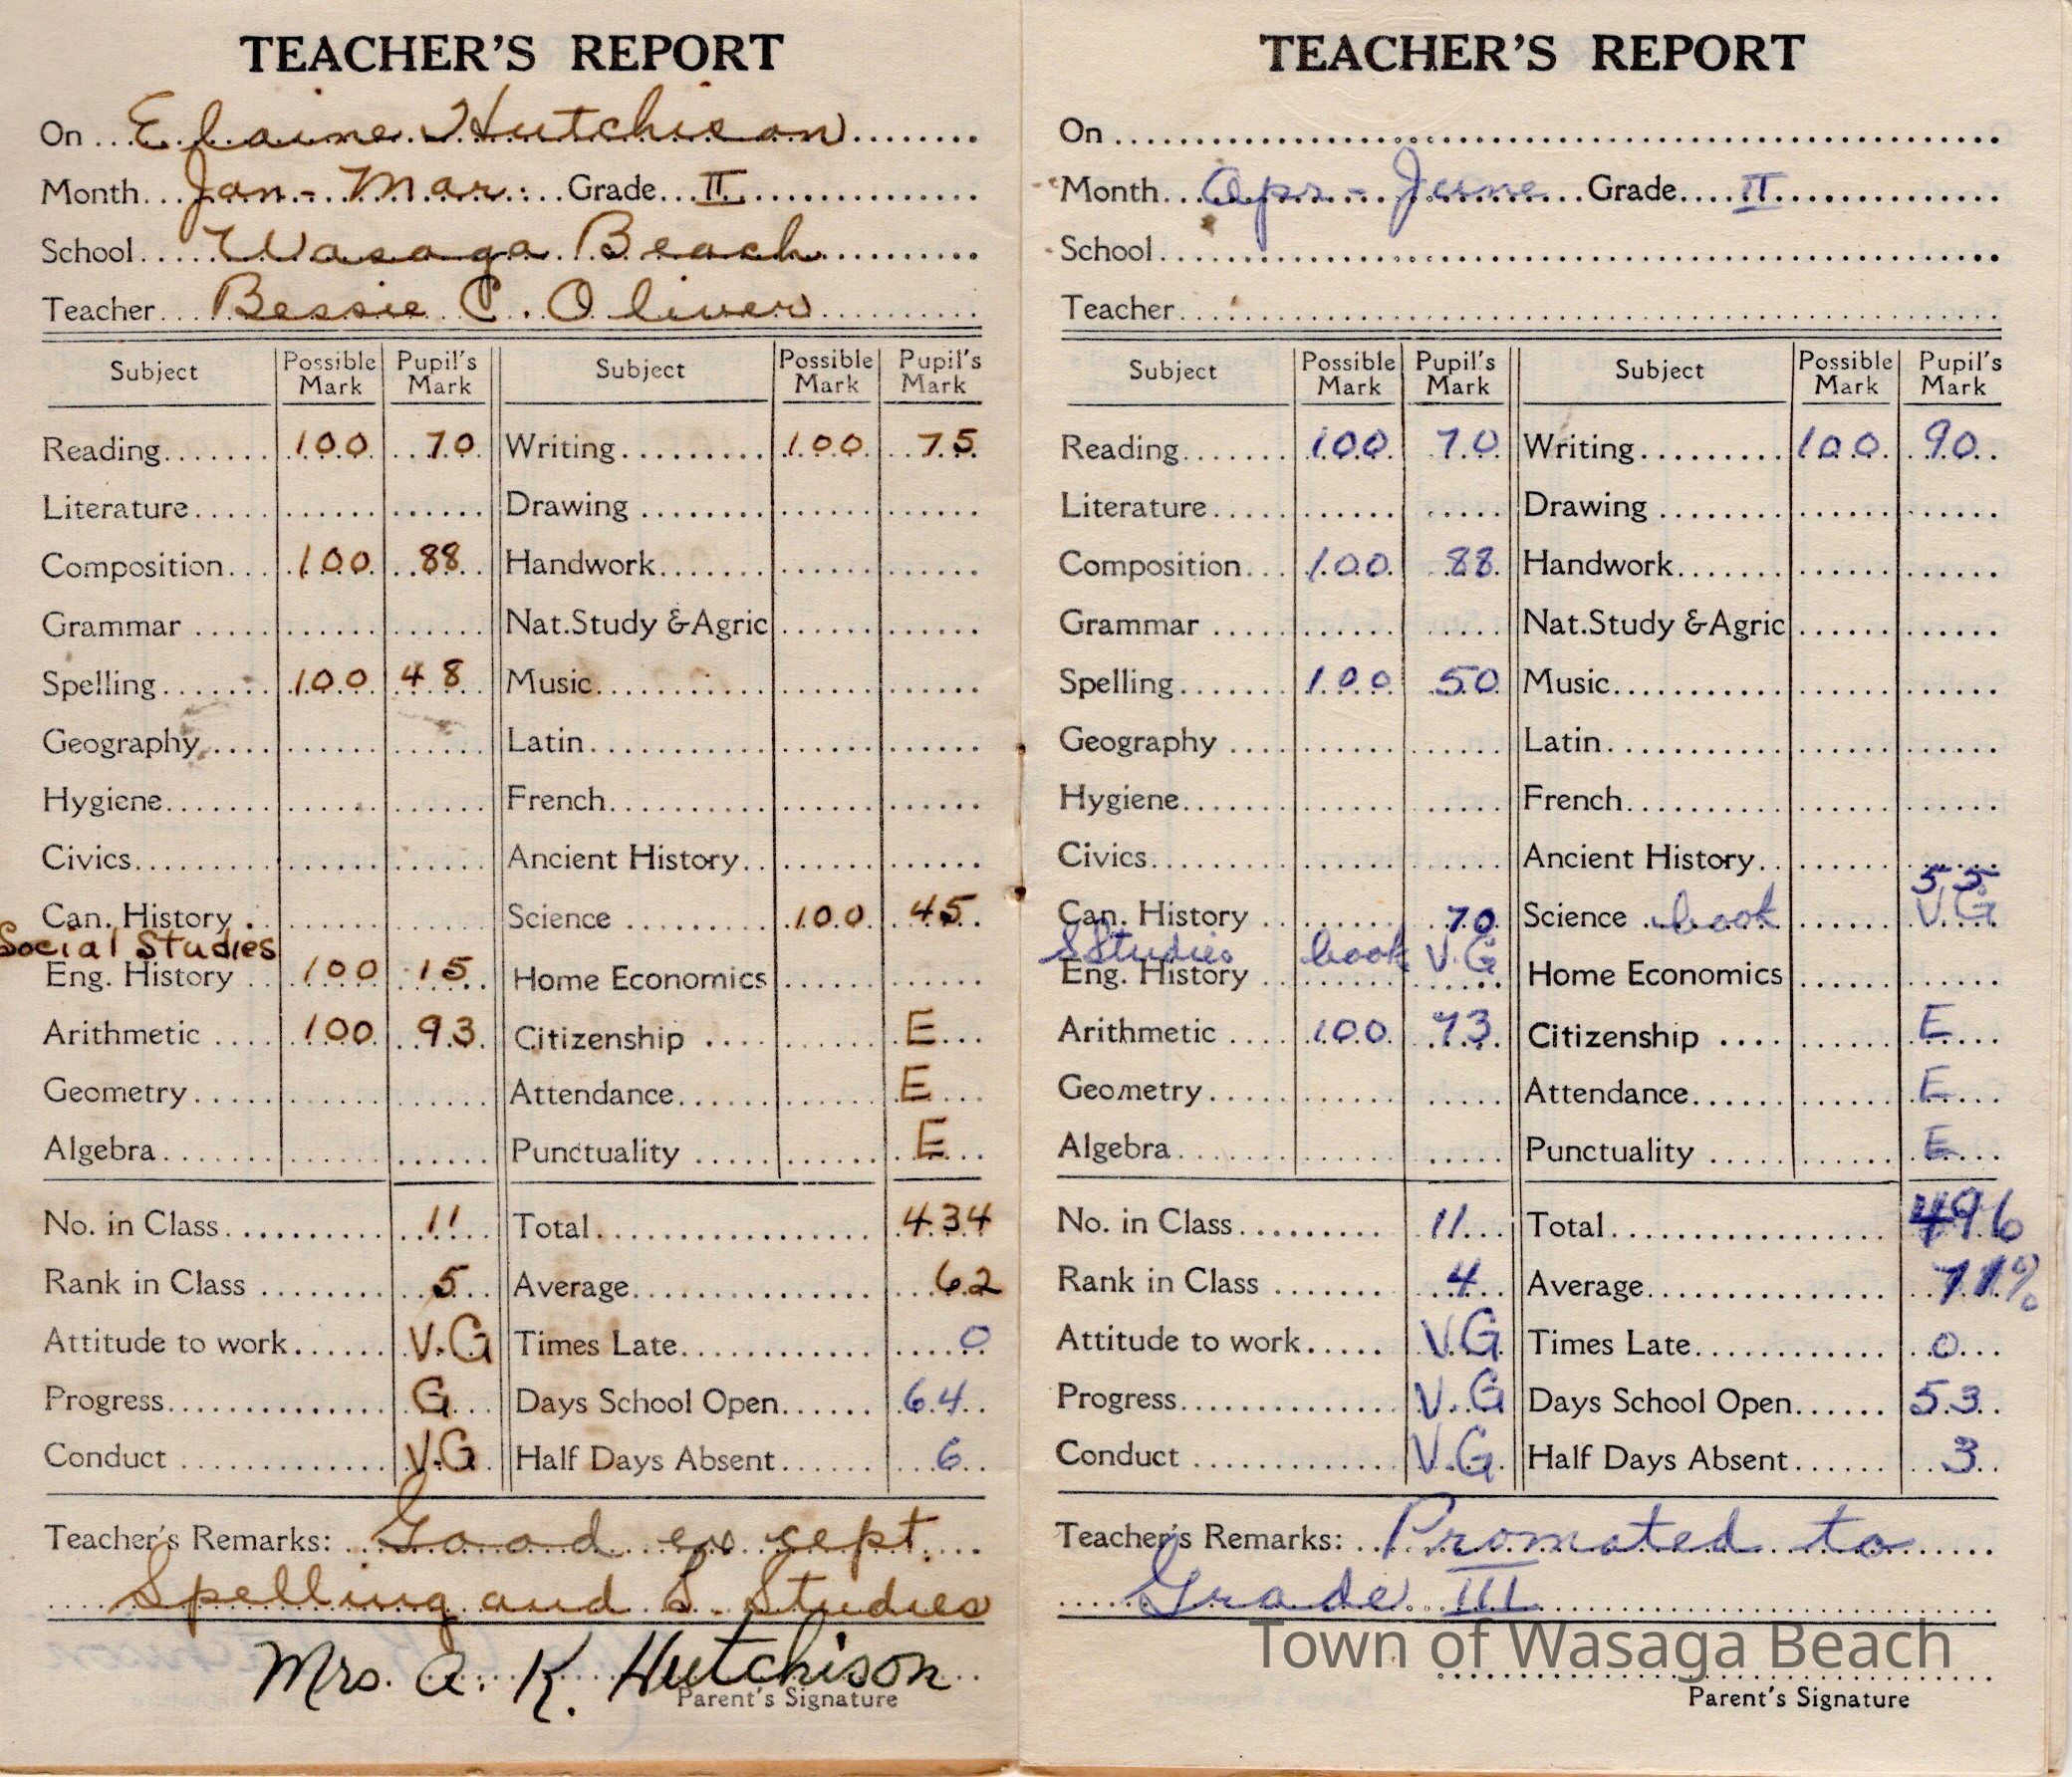 TEACHER'S REPORT
On Elaine Hutchison
Month Jan - Mar. Grade II
School Wasaga Beach
Teacher Bessie C. Oliver
Subject Possible Mark Pupil's Mark Subject Possible Mark Pupil's Mark
Reading 100 70 Writing 100 75
Literature Drawing
Composition 100 88 Handwork
Grammar Nat.Study &Agric
Spelling 100 48 Music
Geography Latin
Hygiene French
Civics Ancient History
Can. History Science 100 45
Social Studies
Eng. History 100 15 Home Economics
Arithmetic 100 93 Citizenship E
Geometry Attendance E
Algebra Punctuality E
No. in Class 11 Total 434
Rank in Class 5 Average 62
Attitude to work V.G Times Late 0
Progress G Days School Open 64
Conduct V.G Half Days Absent 6
Teacher's Remarks: Good except
Spelling and S. Studies
Mrs. A. K. Hutchison
Parent's Signature
TEACHER'S REPORT
On
Month Apr - June Grade II
School
Teacher
Subject Possible Mark Pupil's Mark Subject Possible Mark Pupil's Mark
Reading 100 70 Writing 100 90
Literature Drawing
Composition 100 88 Handwork
Grammar Nat.Study &Agric
Spelling 100 50 Music
Geography Latin
Hygiene French
Civics Ancient History
55
Can. History 70 Science book V.G
S Studies book V.G
Eng. History Home Economics
Arithmetic 100 73 Citizenship E
Geometry Attendance E
Algebra Punctuality E
No. in Class 11 Total 496
Rank in Class 4 Average 71%
Attitude to work V.G Times Late 0
Progress V.G Days School Open 53
Conduct V.G Half Days Absent 3
Teacher's Remarks: Promoted to
Grade III
Town of Wasaga Beach
Parent's Signature